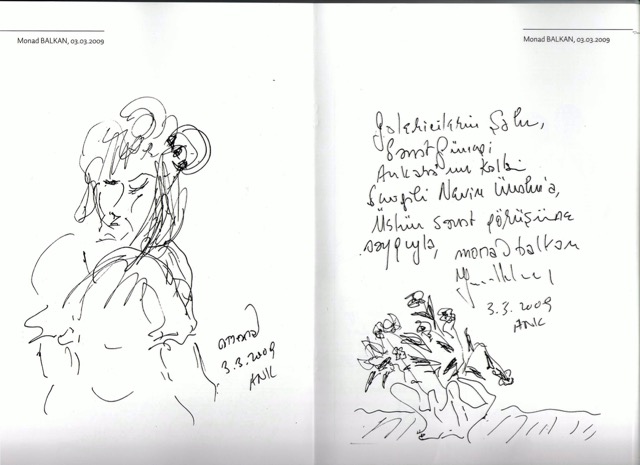 Monad BALKAN, 03.03.2009
monad
3.3.2009
ANK
Monad BALKAN, 03.03.2009
Galericilerin Şahı,
Sanat Güneşi
Ankara'nın Kalbi
Sevgili Nevin
Üstün sanat görüşüne
saygıyla, monad balkan
3.3.2009
ANK